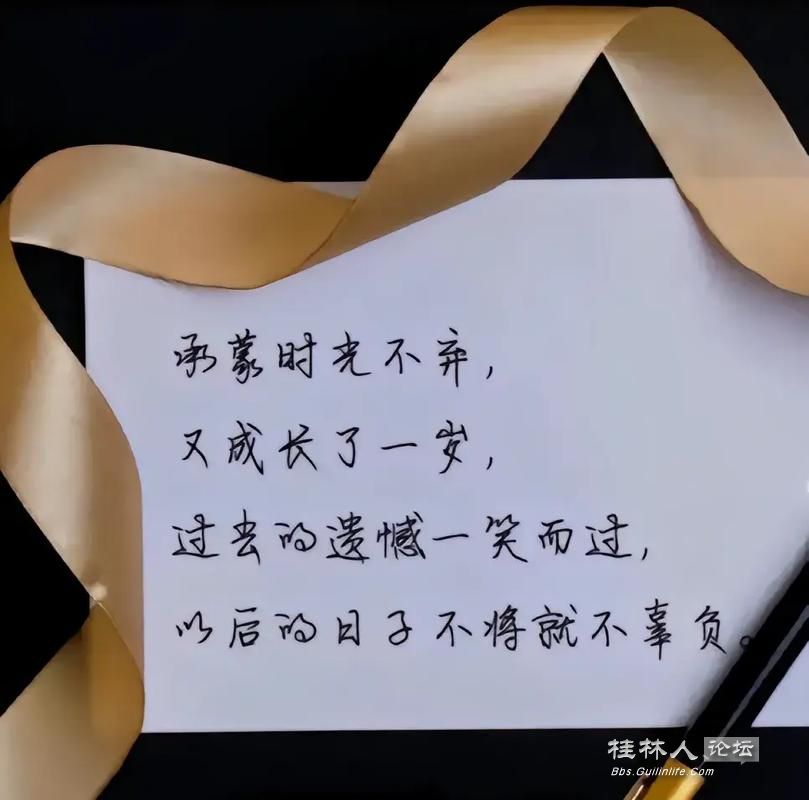 承蒙时光不弃，
又成长了一岁，
过去的遗憾一笑而过，
以后的日子不将就不辜负。
桂林人论坛
Bbs.Guilinlife.Com